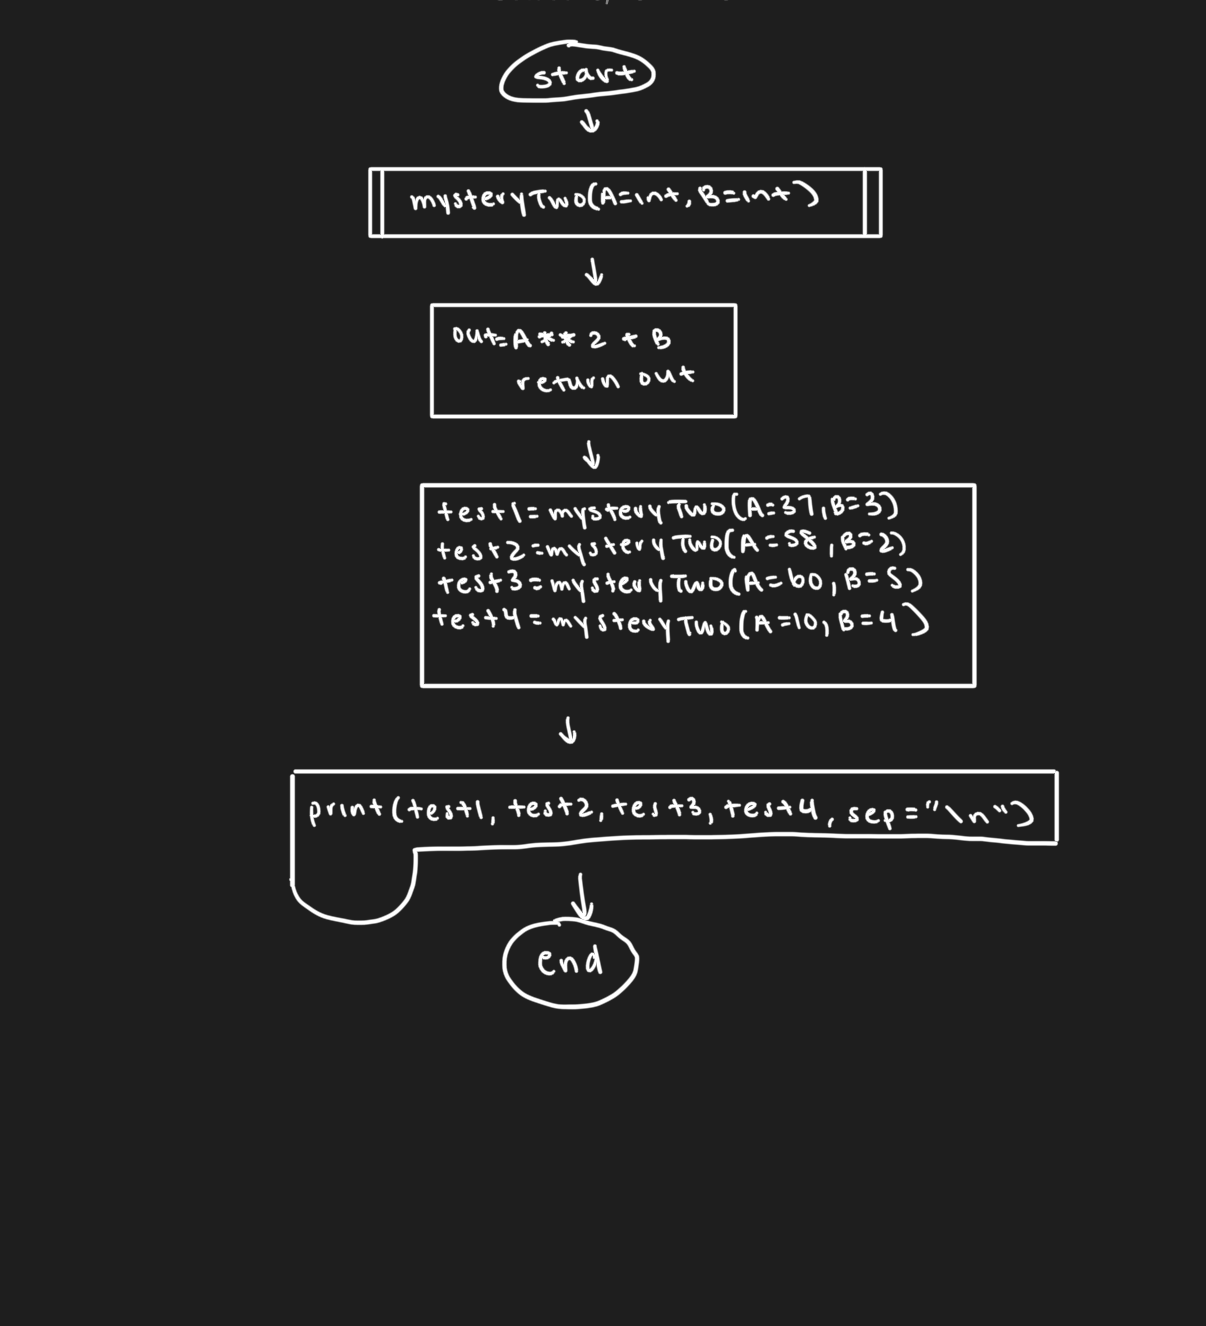 start
mysteryTwo(A=int, B=int)
out=A ** 2 + B
return out
test1=mysteryTwo(A=37,B=3)
test2=mysteryTwo(A=58,B=2)
test3=mysteryTwo(A=60,B=5)
test4=mysteryTwo(A=10,B=4)
print(test1, test2, test3, test4, sep="\n")
end